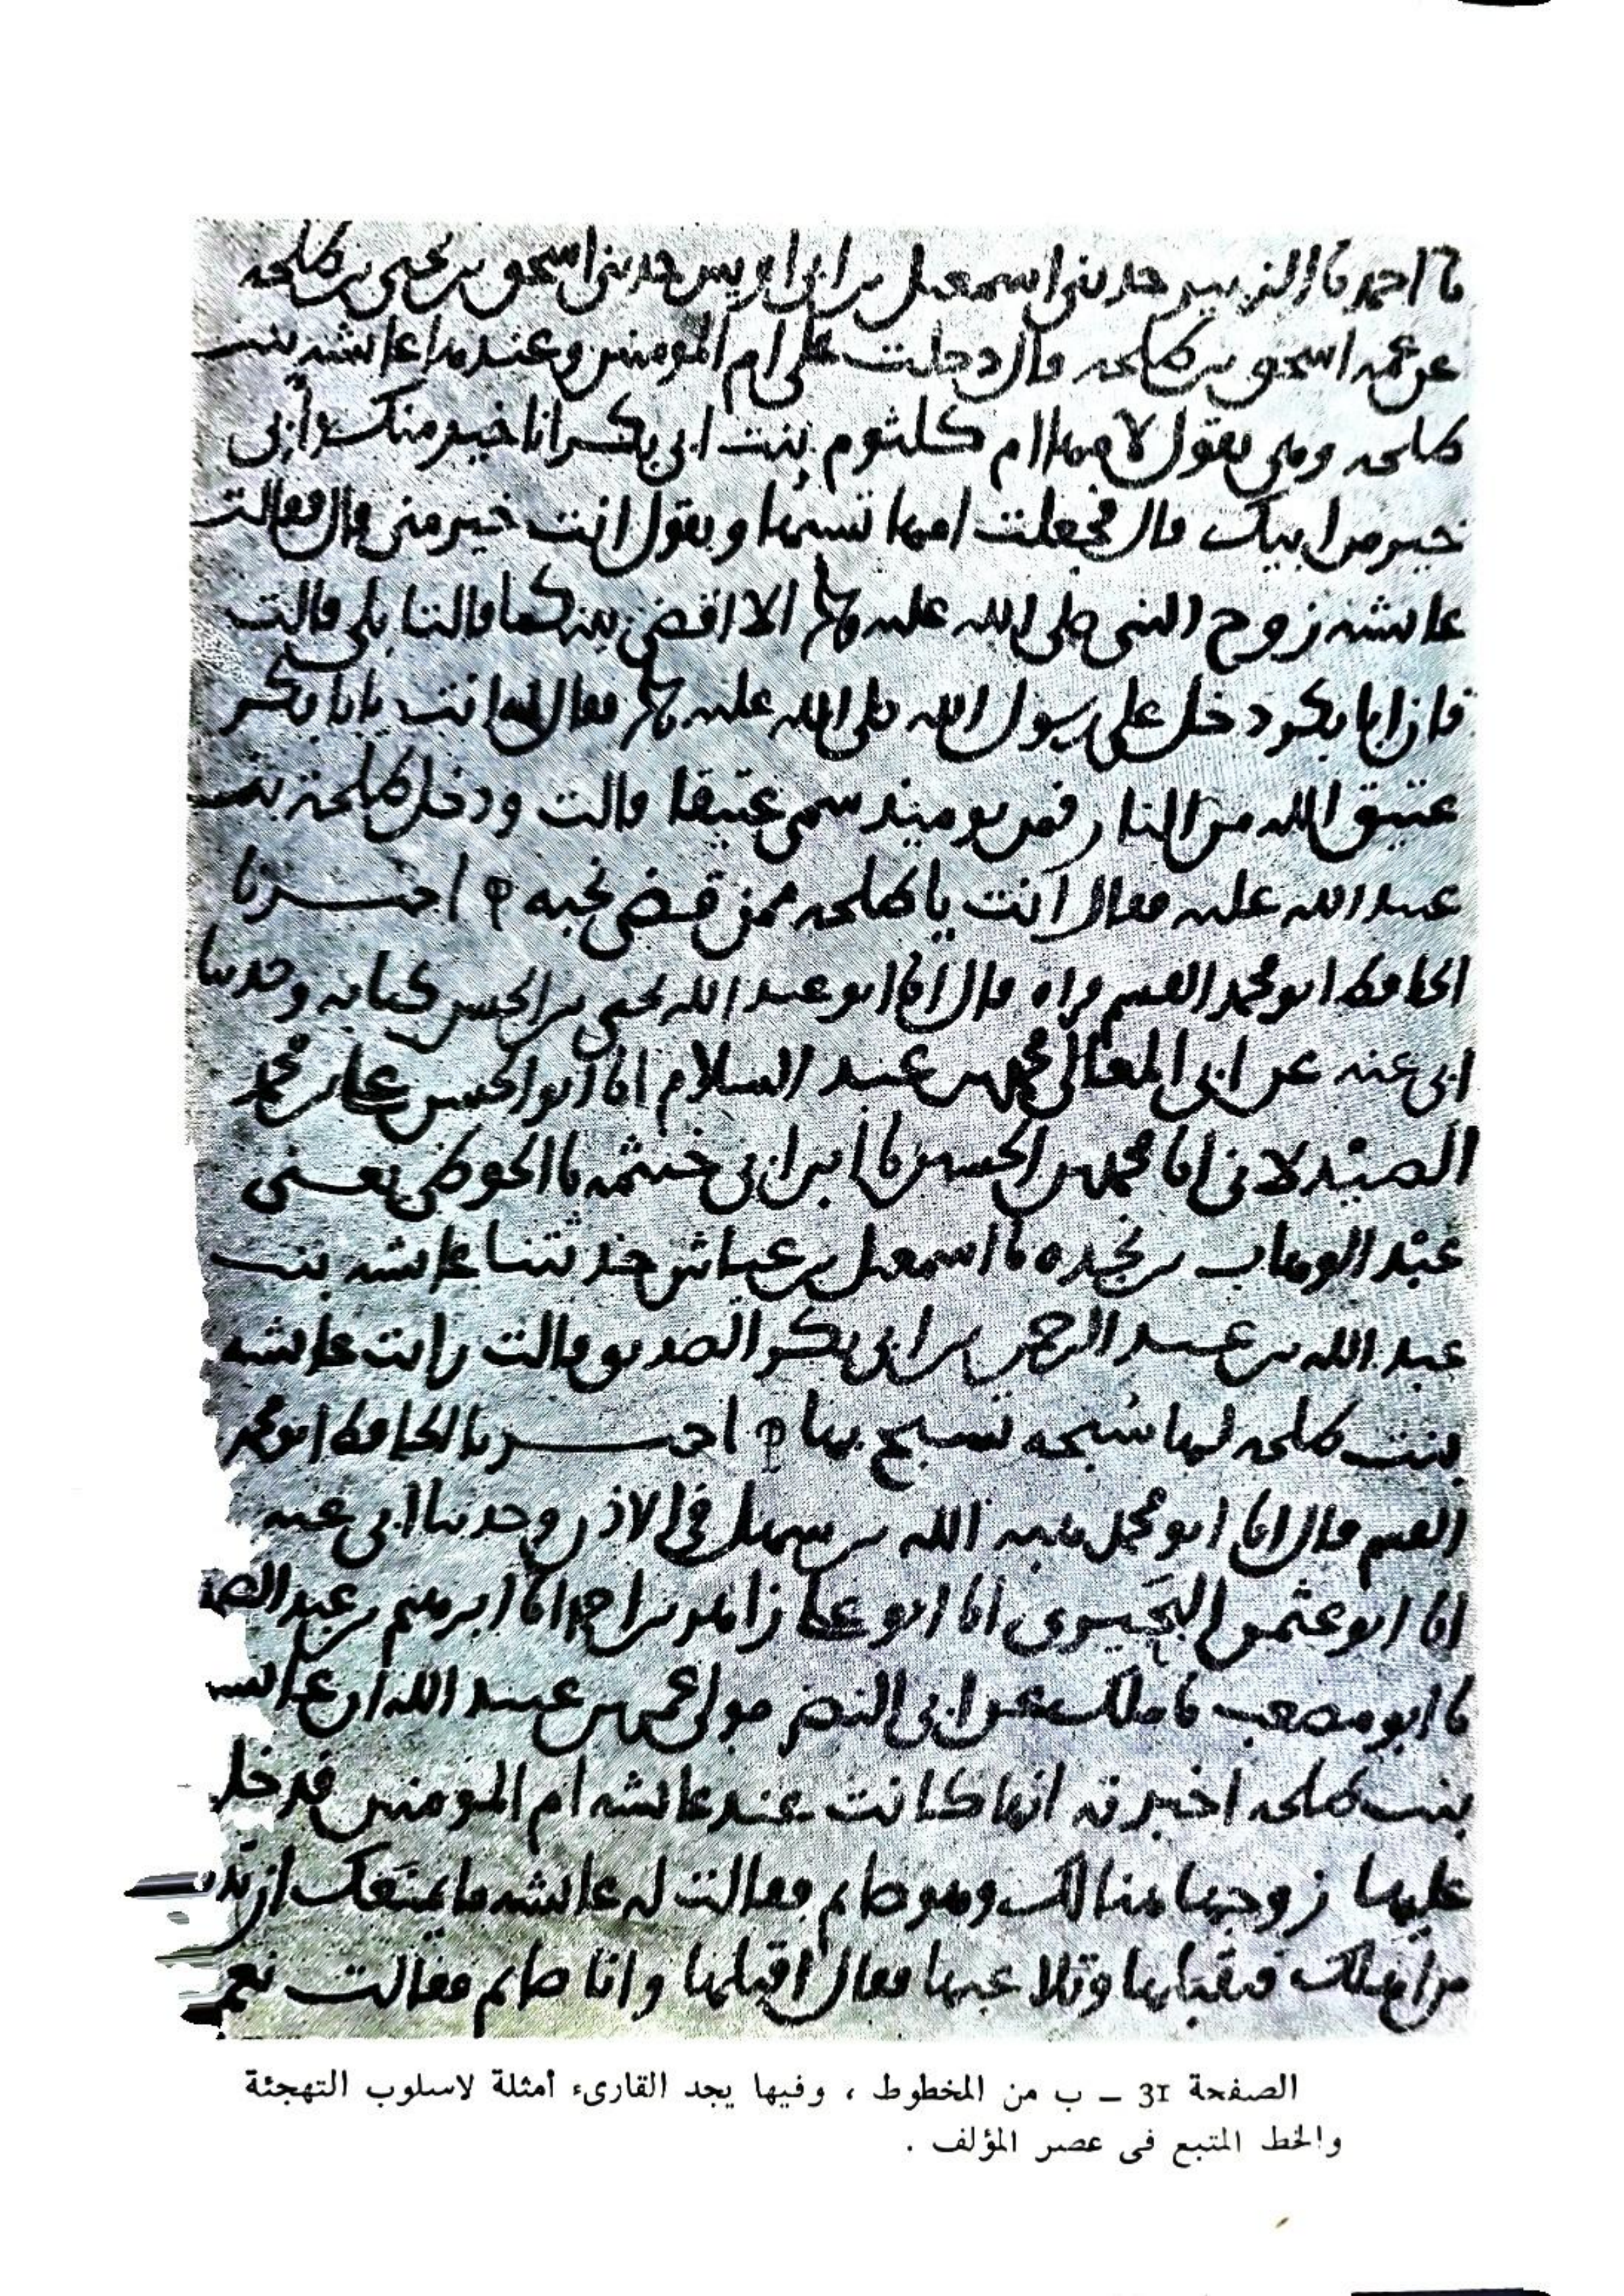 نا احمد نا الزبير حدثنى اسمعيل بن ابى اويس حدثنى اسحق بن يحيى بن طلحه
عن عمه اسحق بن طلحه قال دخلت على ام المومنين وعندها عايشه بنت
طلحه وهى تقول لامها ام كلثوم بنت ابى بكر انا خير منك وأبى
خير من ابيك قال فجعلت امها تسبها وتقول انت خير منى قال فقالت
عايشه زوج النبى صلى الله عليه الا اقضى بينكما قالتا بلى قالت
فان ابا بكر دخل على رسول الله صلى الله عليه فقال له انت يابا بكر
عتيق الله من النار فمن يوميذ سمى عتيقا قالت ودخل طلحة بن
عبيد الله عليه فقال انت يا طلحه ممن قضى نحبه اخبرنا
الحافظ ابو محمد القسم قراه قال انا ابو عبد الله يحيى بن الحسن كتابه وحدثنا
ابى عنه عن ابى المعالى محمد بن عبد السلام انا ابو الحسن على بن محمد
الصيدلانى انا محمد بن الحسين نا ابن ابى خيثمه نا الحوطى يعنى
عبد الوهاب بن نجده نا اسمعيل بن عياش حدثتنا عايشه بنت
عبد الله بن عبد الرحمن بن ابى بكر الصديق قالت رايت عايشه
بنت طلحه لها سبحه تسبح بها اخبرنا الحافظ ابو محمد
القسم قال انا ابو محمد هبه الله بن سهل فى الاذن وحدثنا ابى عنه
انا ابو عثمن البحيرى انا ابو على زاهر بن احمد انا ابرهيم بن عبد الصمد
نا ابو مصعب نا ملك عن ابى النضر مولى عمر بن عبيد الله ان عايشه
بنت طلحه اخبرته انها كانت عند عايشه ام المومنين فدخل
عليها زوجها هنالك وهو صايم فقالت له عايشه ما يمنعك ان تدنو
من اهلك فتقبلها وتلاعبها فقال اقبلها وانا صايم فقالت نعم
الصفحة 31 – ب من المخطوط ، وفيها يجد القارىء أمثلة لاسلوب التهجئة
والخط المتبع فى عصر المؤلف .